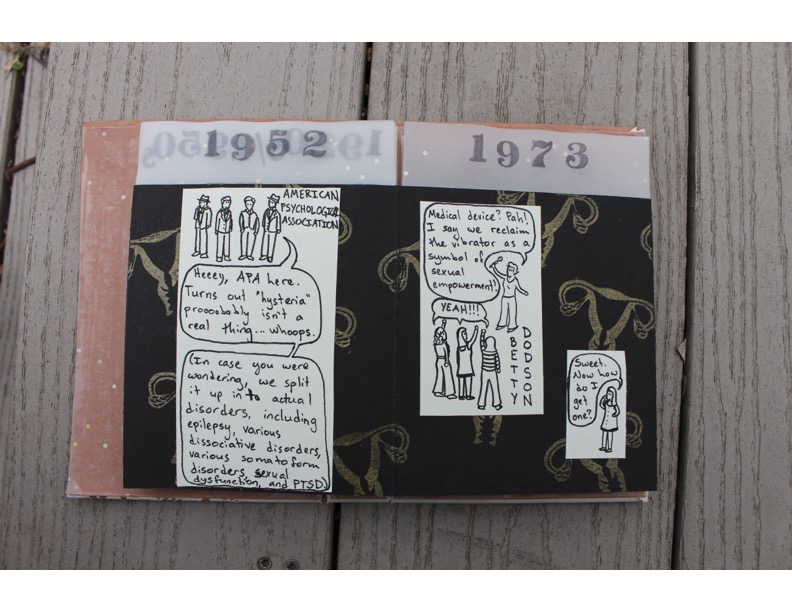 1952
AMERICAN
PSYCHOLOGICAL
ASSOCIATION
Heeey, APA here.
Turns out "hysteria"
prooobably isn't a
real thing... whoops.
(In case you were
wondering, we split
it up into actual
disorders, including
epilepsy, various
dissociative disorders,
various somatoform
disorders, sexual
dysfunction, and PTSD.)
1973
Medical device? Pah!
I say we reclaim
the vibrator as a
symbol of
sexual
empowerment!
YEAH!!!
BETTY
DODSON
Sweet.
Now how
do I
get
one?